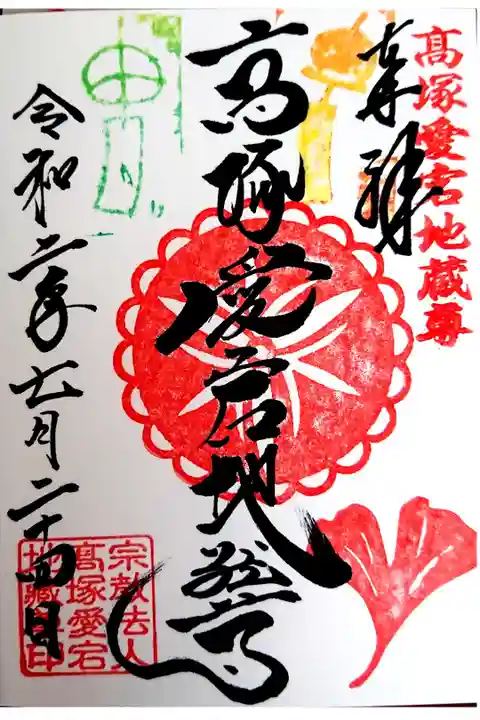 髙塚愛宕地蔵尊
奉拝
高塚愛宕地蔵尊
令和二年七月二十四日
宗教法人
髙塚愛宕
地蔵尊印